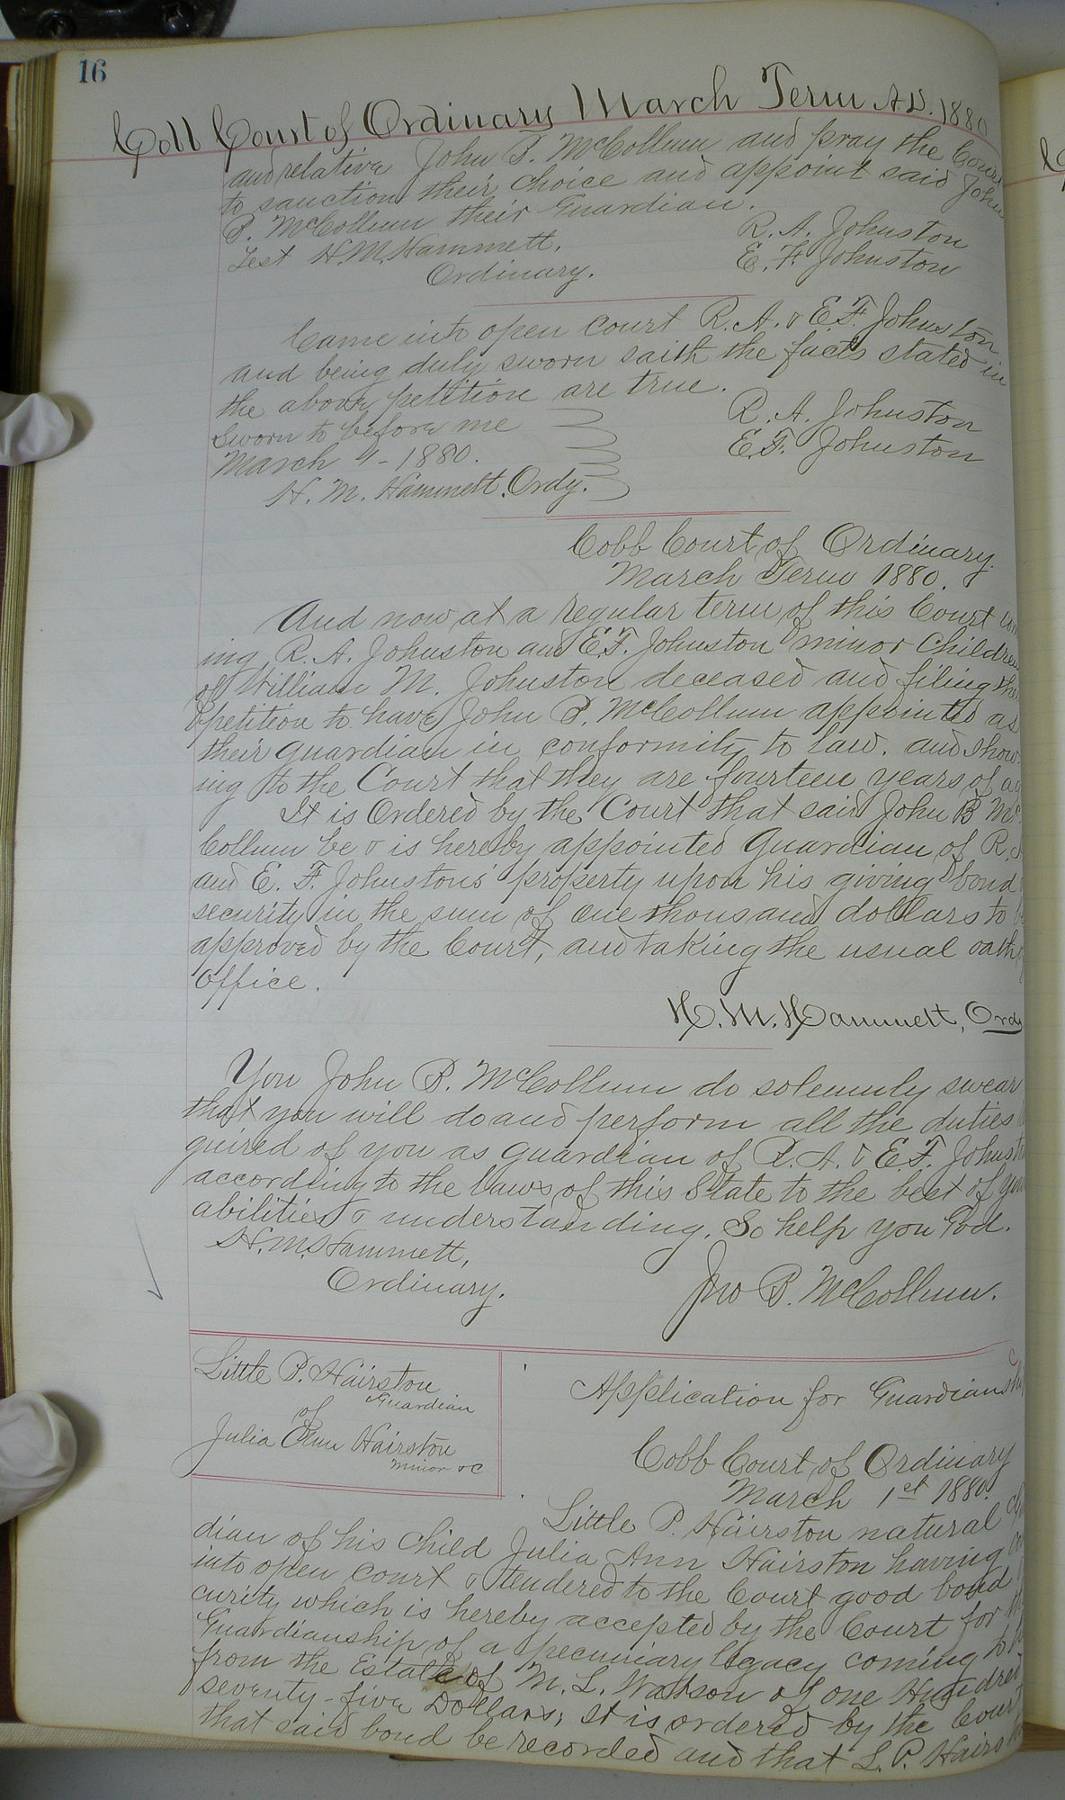 16
Cobb Court of Ordinary March Term A.D. 1880
and relative John B. McCollum and pray the Court
to sanction their choice and appoint said John
B. McCollum their Guardian.
R. A. Johnston
Test H. M. Hammett,
E. F. Johnston
Ordinary.
Came into open Court R. A. & E. F. Johnston
and being duly sworn saith the facts stated in
the above petition are true.
R. A. Johnston
Sworn to before me
E. F. Johnston
March 4-1880.
H. M. Hammett, Ordy.
Cobb Court of Ordinary.
March Term 1880.
And now at a regular term of this Court com
ing, R. A. Johnston and E. F. Johnston minor children
of William M. Johnston deceased and filing
petition to have John B. McCollum appointed as
their guardian in conformity to law. and show
ing to the Court that they are fourteen years of
It is Ordered by the Court that said John B Mc
Collum be & is hereby appointed Guardian of R.
and E. F. Johnstons property upon his giving bond
security in the sum of one thousand dollars to
approved by the Court, and taking the usual oath
office.
H. M. Hammett, Ordy
You John B. McCollum do solemnly swear
that you will do and perform all the duties
quired of you as guardian of R. A. & E. F. Johnst
according to the laws of this State to the best of your
abilities & understanding. So help you God.
H. M. Hammett,
Ordinary.
Jno B. McCollum.
Little P. Hairston
Guardian
of
Julia Ann Hairston
Minor &C
Application for Guardianship
Cobb Court of Ordinary
March 1st 1880.
Little P. Hairston natural
dian of his child Julia Ann Hairston having
into open court & tendered to the Court good bond
curity which is hereby accepted by the Court for
Guardianship of a pecuniary legacy coming to
from the Estate of M. L. Watson of one Hundred
seventy-five Dollars; It is ordered by the Court
that said bond be recorded and that L. P. Hairs